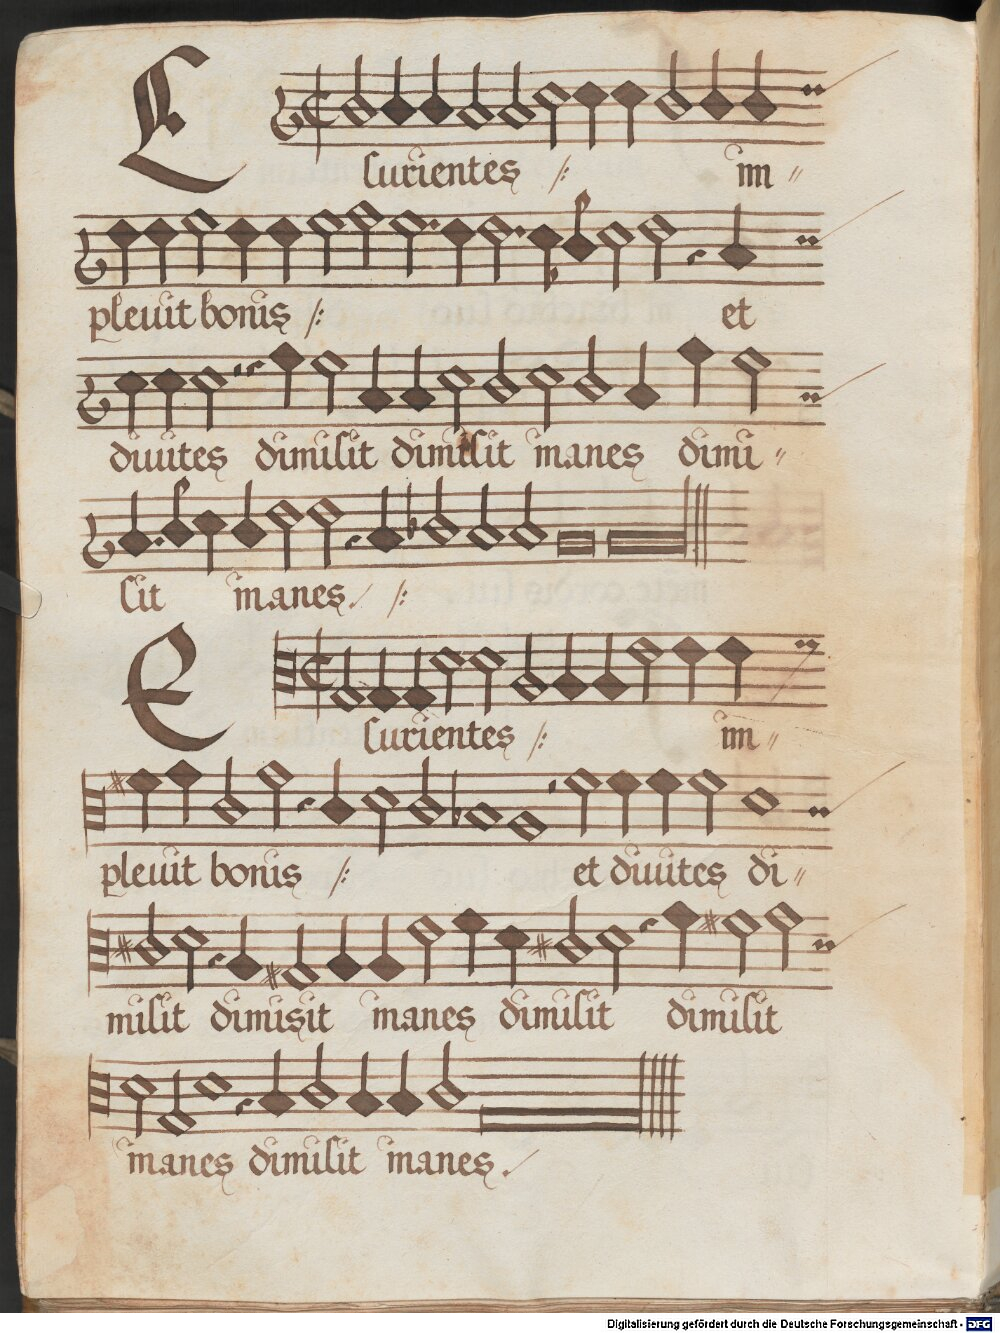 E
surientes /: im //
pleuit bonis /: et
diuites dimisit dimisit inanes dimi //
sit inanes. /:
E
surientes /: im //
pleuit bonis /: et diuites di //
misit dimisit inanes dimisit dimisit
inanes dimisit inanes.
Digitalisierung gefördert durch die Deutsche Forschungsgemeinschaft - DFG